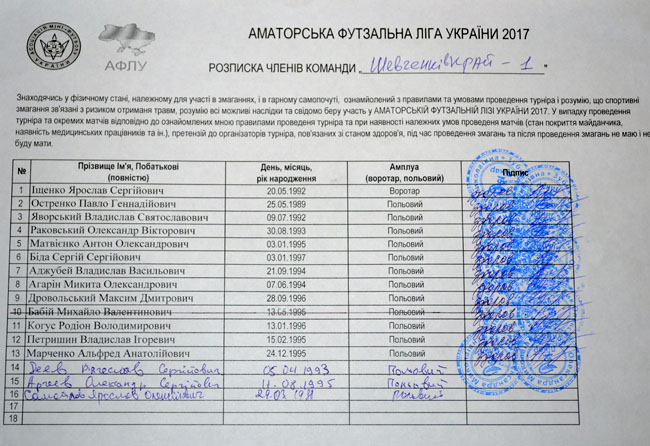 АСОЦІАЦІЯ МІНІ-ФУТБОЛУ УКРАЇНИ
АФЛУ
АМАТОРСЬКА ФУТЗАЛЬНА ЛІГА УКРАЇНИ 2017
РОЗПИСКА ЧЛЕНІВ КОМАНДИ „Шевченків край - 1"
Знаходячись у фізичному стані, належному для участі в змаганнях, і в гарному самопочуті, ознайомлений з правилами та умовами проведення турніра і розумію, що спортивні
змагання зв'язані з ризиком отриманя травм, розумію всі можливі наслідки та свідомо беру участь у АМАТОРСЬКІЙ ФУТЗАЛЬНІЙ ЛІЗІ УКРАЇНИ 2017. У випадку проведення
турніра та окремих матчів відповідно до ознайомлених мною правилами проведення турніра та при наявності належних умов проведення матчів (стан покриття майданчика,
наявність медицинських працівників та ін.), претензій до організаторів турніра, пов'язаних зі станом здоров'я, під час проведення змагань та після проведення змагань не маю і не
буду мати.
№ Прізвище Ім'я, Побатькові (повністю) День, місяць, рік народження Амплуа (воротар, польовий) Підпис
1 Іщенко Ярослав Сергійович 20.05.1992 Воротар
2 Остренко Павло Геннадійович 25.05.1989 Польовий
3 Яворський Владислав Святославович 09.07.1992 Польовий
4 Раковський Олександр Вікторович 30.08.1993 Польовий
5 Матвієнко Антон Олександрович 03.01.1995 Польовий
6 Біда Сергій Сергійович 03.01.1997 Польовий
7 Аджубей Владислав Васильович 21.09.1994 Польовий
8 Агарін Микита Олександрович 07.06.1994 Польовий
9 Дровольський Максим Дмитрович 28.09.1996 Польовий
10 Бабій Михайло Валентинович 13.05.1995 Польовий
11 Когус Родіон Володимирович 13.01.1996 Польовий
12 Петришин Владислав Ігоревич 15.02.1995 Польовий
13 Марченко Альфред Анатолійович 24.12.1995 Польовий
14 Сергійович 05.04.1993 Польовий
15 Олександр Сергійович 11.08.1995 Польовий
16 Ярослав Олексійович 29.03 Польовий
17
18